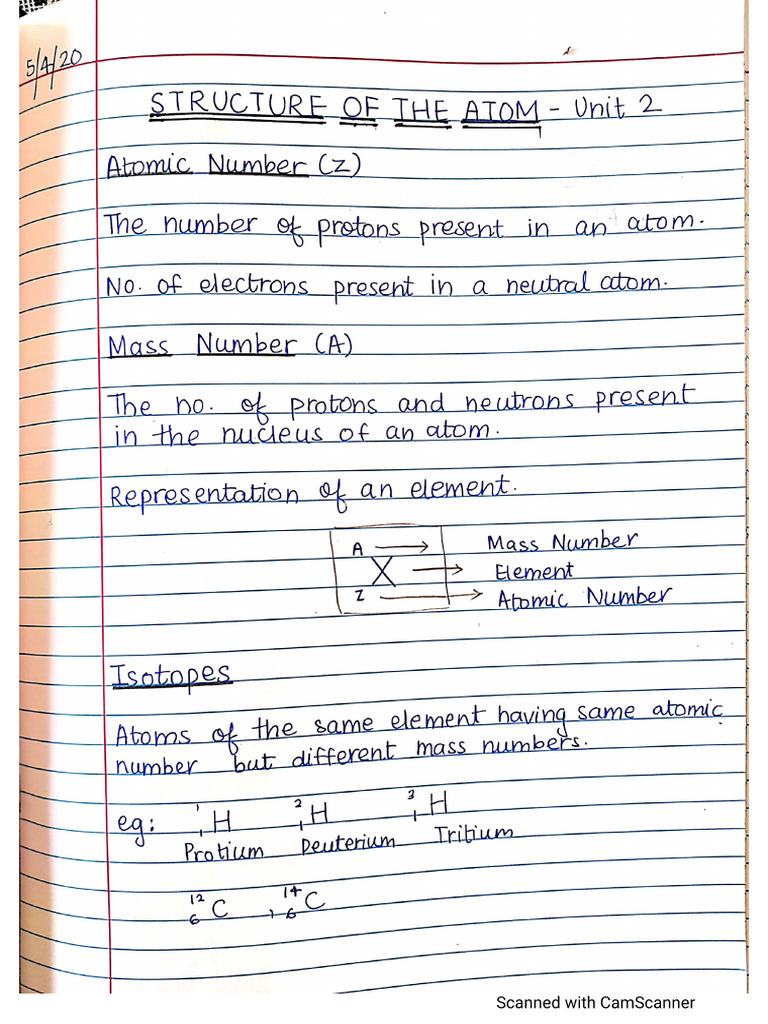 5/4/20
STRUCTURE OF THE ATOM - Unit 2
Atomic Number (Z)
The number of protons present in an atom.
No. of electrons present in a neutral atom.
Mass Number (A)
The no. of protons and neutrons present
in the nucleus of an atom.
Representation of an element.
A → Mass Number
X → Element
Z → Atomic Number
Isotopes
Atoms of the same element having same atomic
number but different mass numbers.
eg: ¹₁H ²₁H ³₁H
Protium Deuterium Tritium
¹²₆C , ¹⁴₆C
Scanned with CamScanner